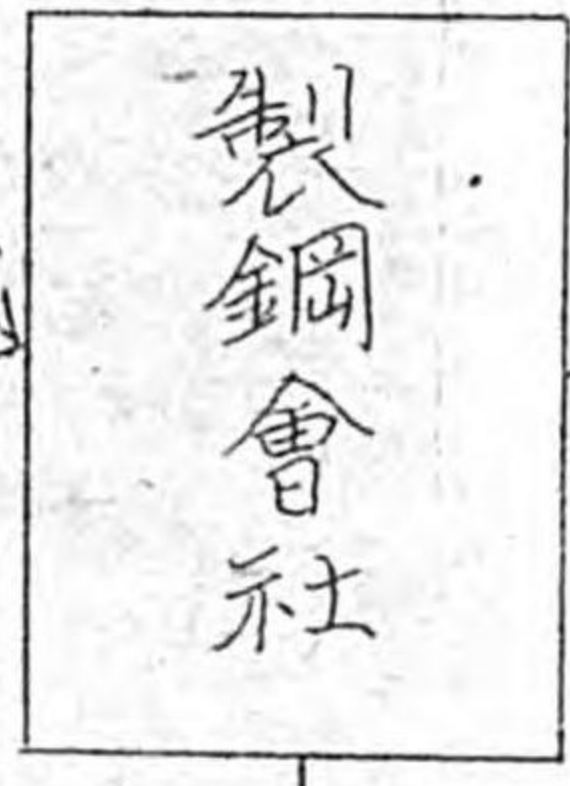 製鋼會社